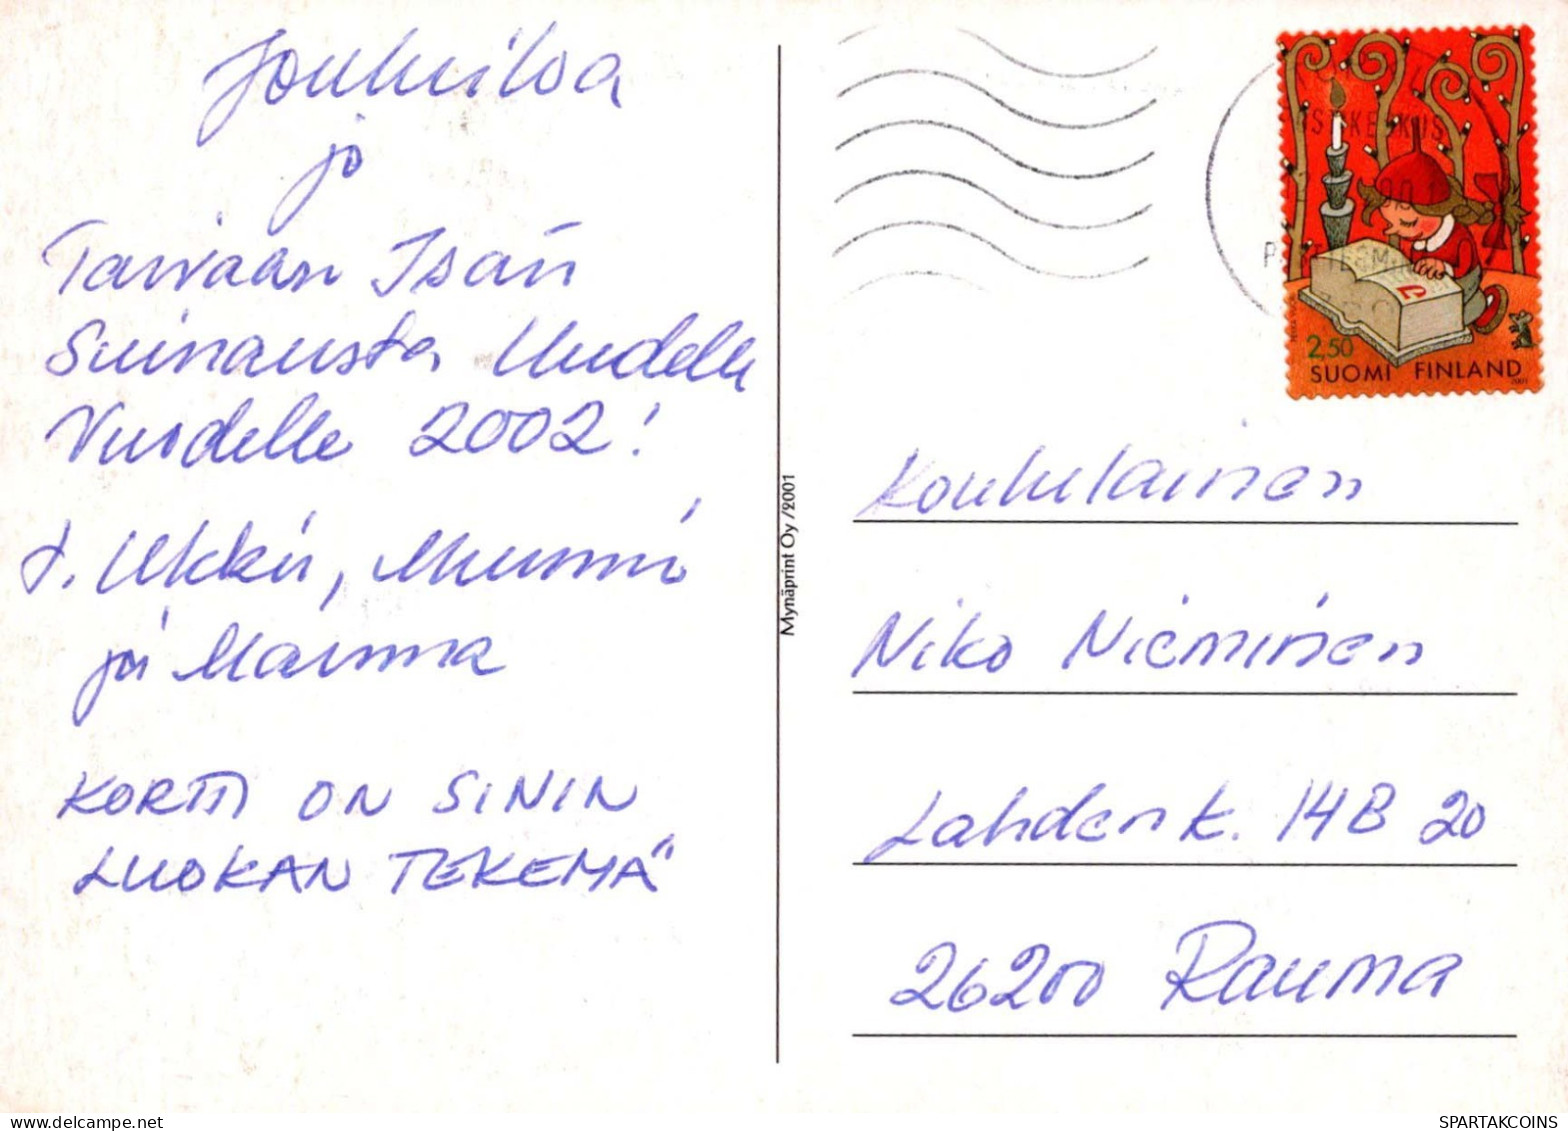 Jouluiloa
ja
Taivaan Isän
Siunausta Uudelle
Vuodelle 2002!
t. Ukki, Mummi
ja Mamma
KORTTI ON SININ
LUOKAN TEKEMÄ
Mynäprint Oy /2001
2.50
SUOMI FINLAND
2001
Koululainen
Niko Nieminen
Lahdenk. 14B 20
26200 Rauma
SPARTAKCOINS